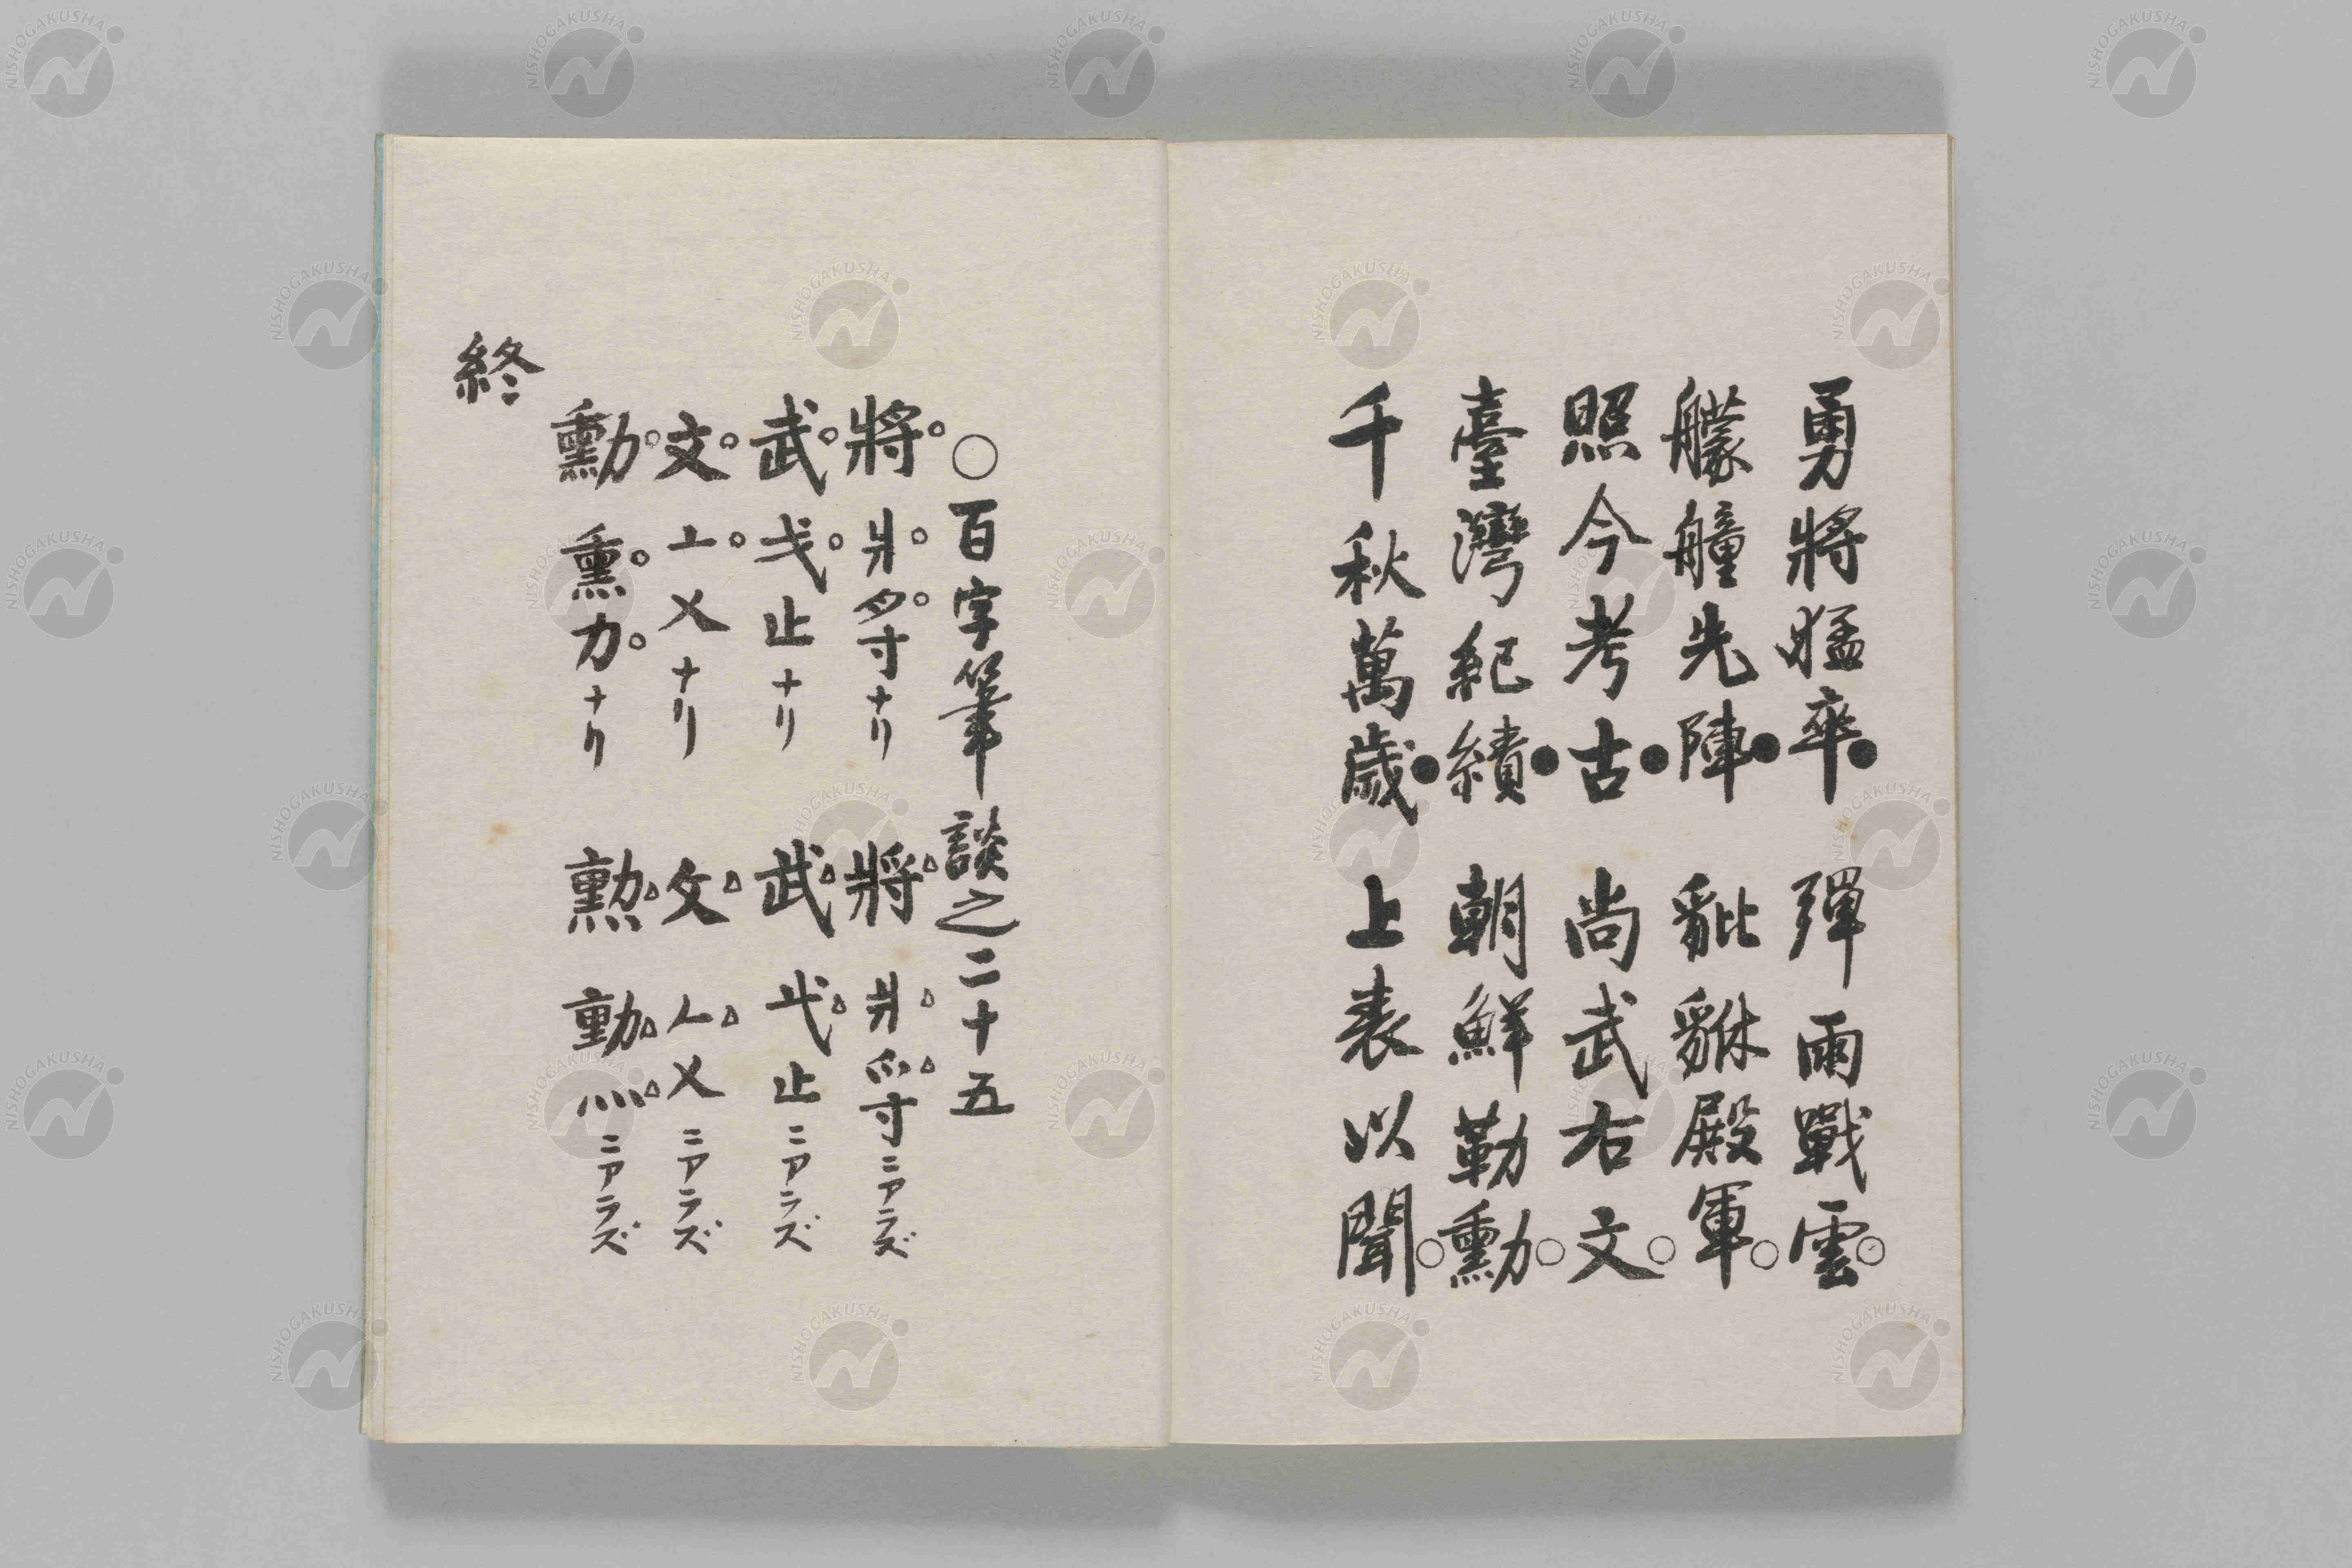 勇將猛卒● 彈雨戰雲○
艨艟先陣● 貔貅殿軍○
照今考古● 尚武右文○
臺灣紀績● 朝鮮勒勳○
千秋萬歲● 上表以聞○
○百字筆談之二十五
將 爿寸ナリ 將 爿寸ニアラズ
武 弋止ナリ 武 止ニアラズ
文 亠乂ナリ 文 𠂉乂ニアラズ
勳 熏力ナリ 勲 動灬ニアラズ
終
NISHOGAKUSHA